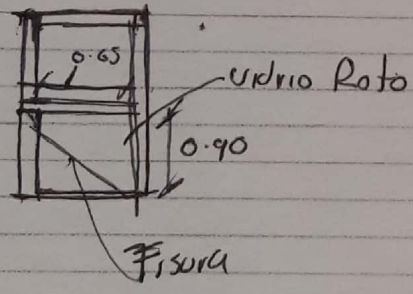 0.65
Vidrio Roto
0.90
Fisura